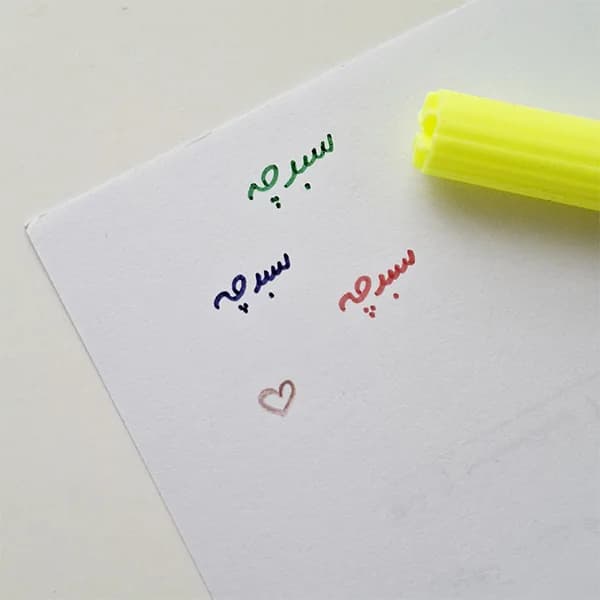 سبرچه
سبرچه
سبرچه